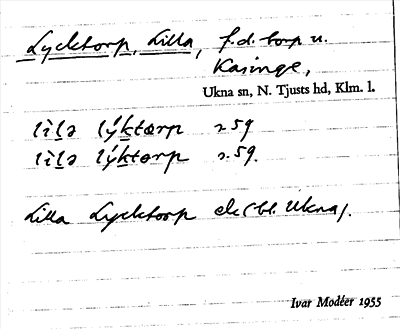 Lycktorp, Lilla, f.d. torp u.
Kasinge,
Ukna sn, N. Tjusts hd, Klm. l.
lìḷə lýktɔrp s. 59
lìḷə lýktɔrp s. 59.
Lilla Lycktorp ek (bl. Ukna).
Ivar Modéer 1955